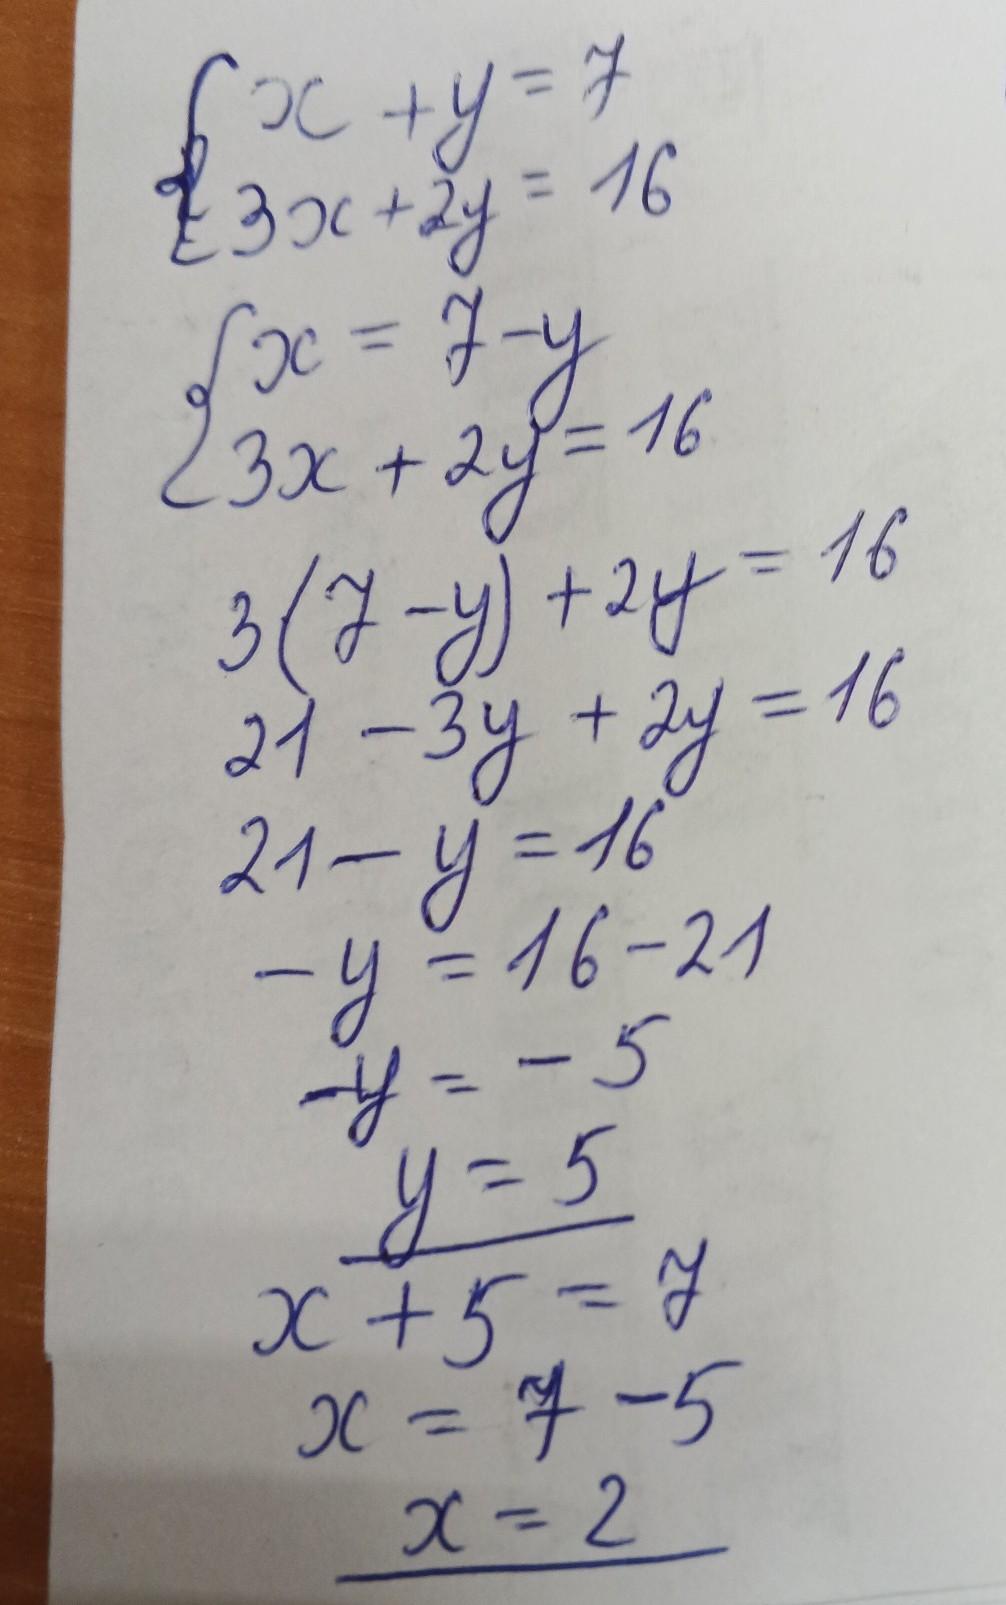 { x + y = 7
3x + 2y = 16
{ x = 7 - y
3x + 2y = 16
3(7 - y) + 2y = 16
21 - 3y + 2y = 16
21 - y = 16
- y = 16 - 21
- y = - 5
y = 5
x + 5 = 7
x = 7 - 5
x = 2